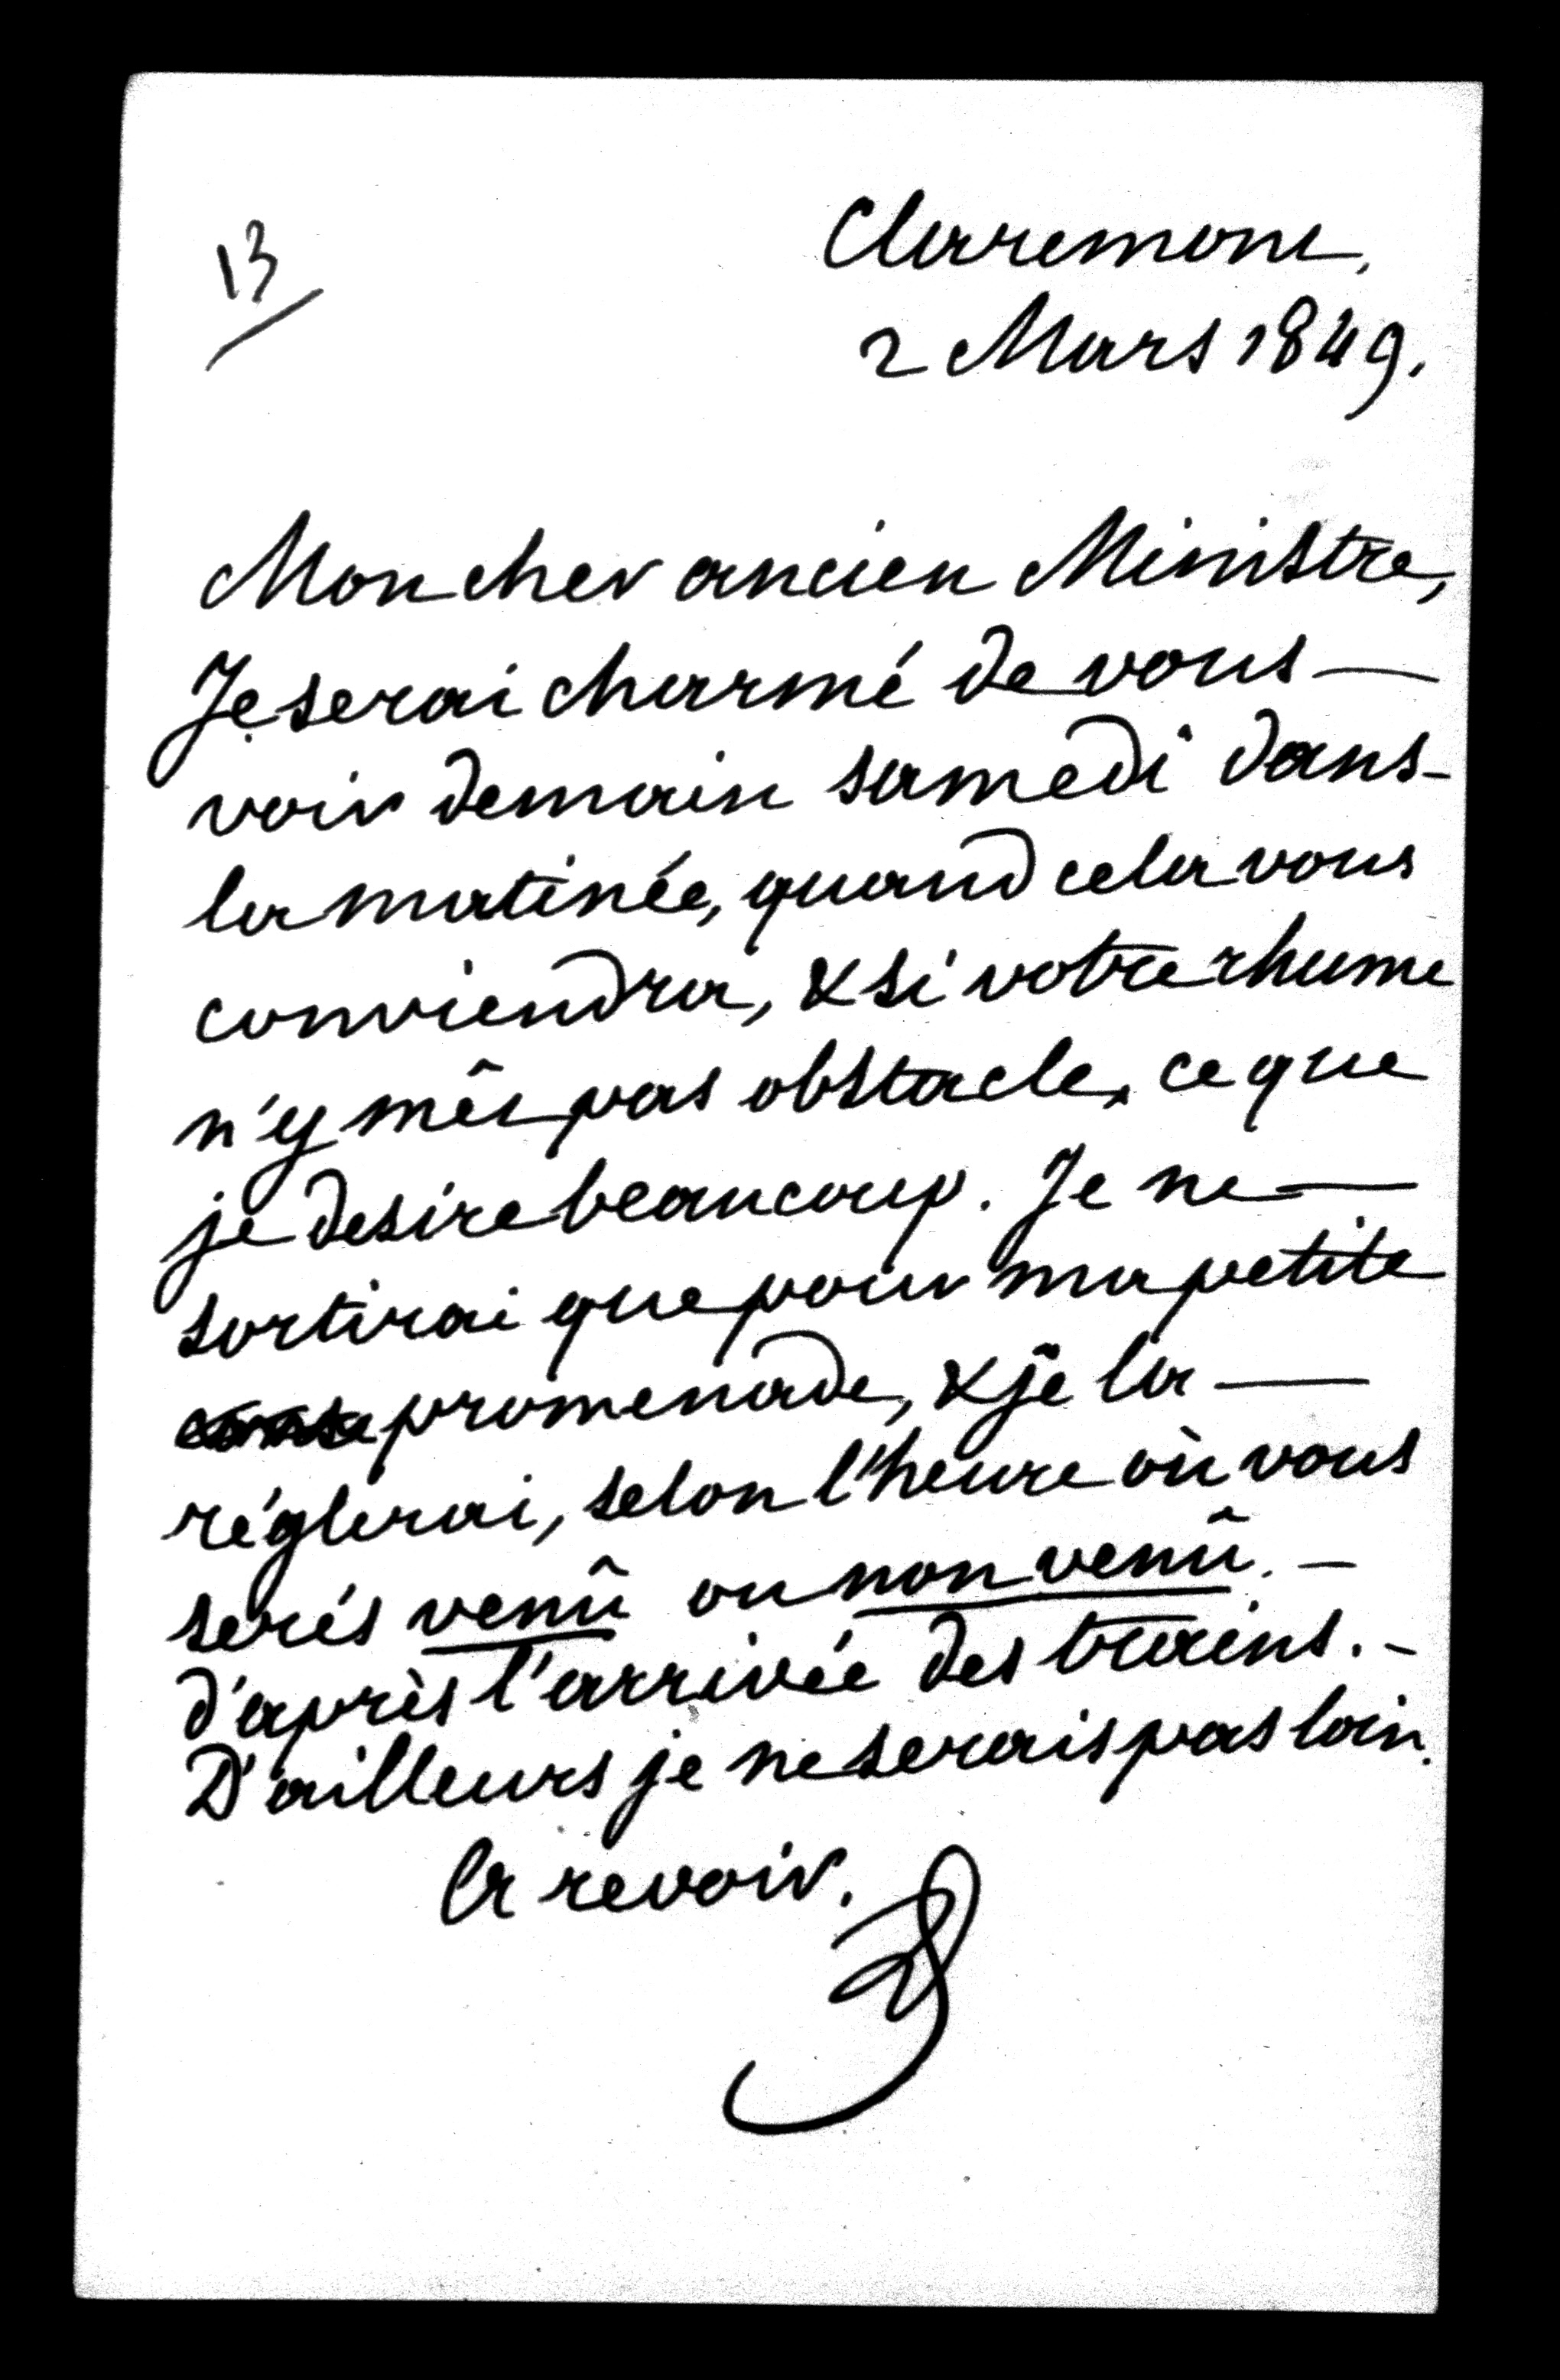 13
Claremont,
2 Mars 1849.
Mon cher ancien Ministre,
Je serai charmé de vous —
voir demain samedi dans -
la matinée, quand cela vous
conviendra, & si votre rhume
n'y mêt pas obstacle, ce que
je desire beaucoup. Je ne —
sortirai que pour ma petite
promenade, & je la —
réglerai, selon l'heure où vous
serés venû ou non venû. —
d'après l'arrivée des trains. -
D'ailleurs je ne serais pas loin.
A revoir.